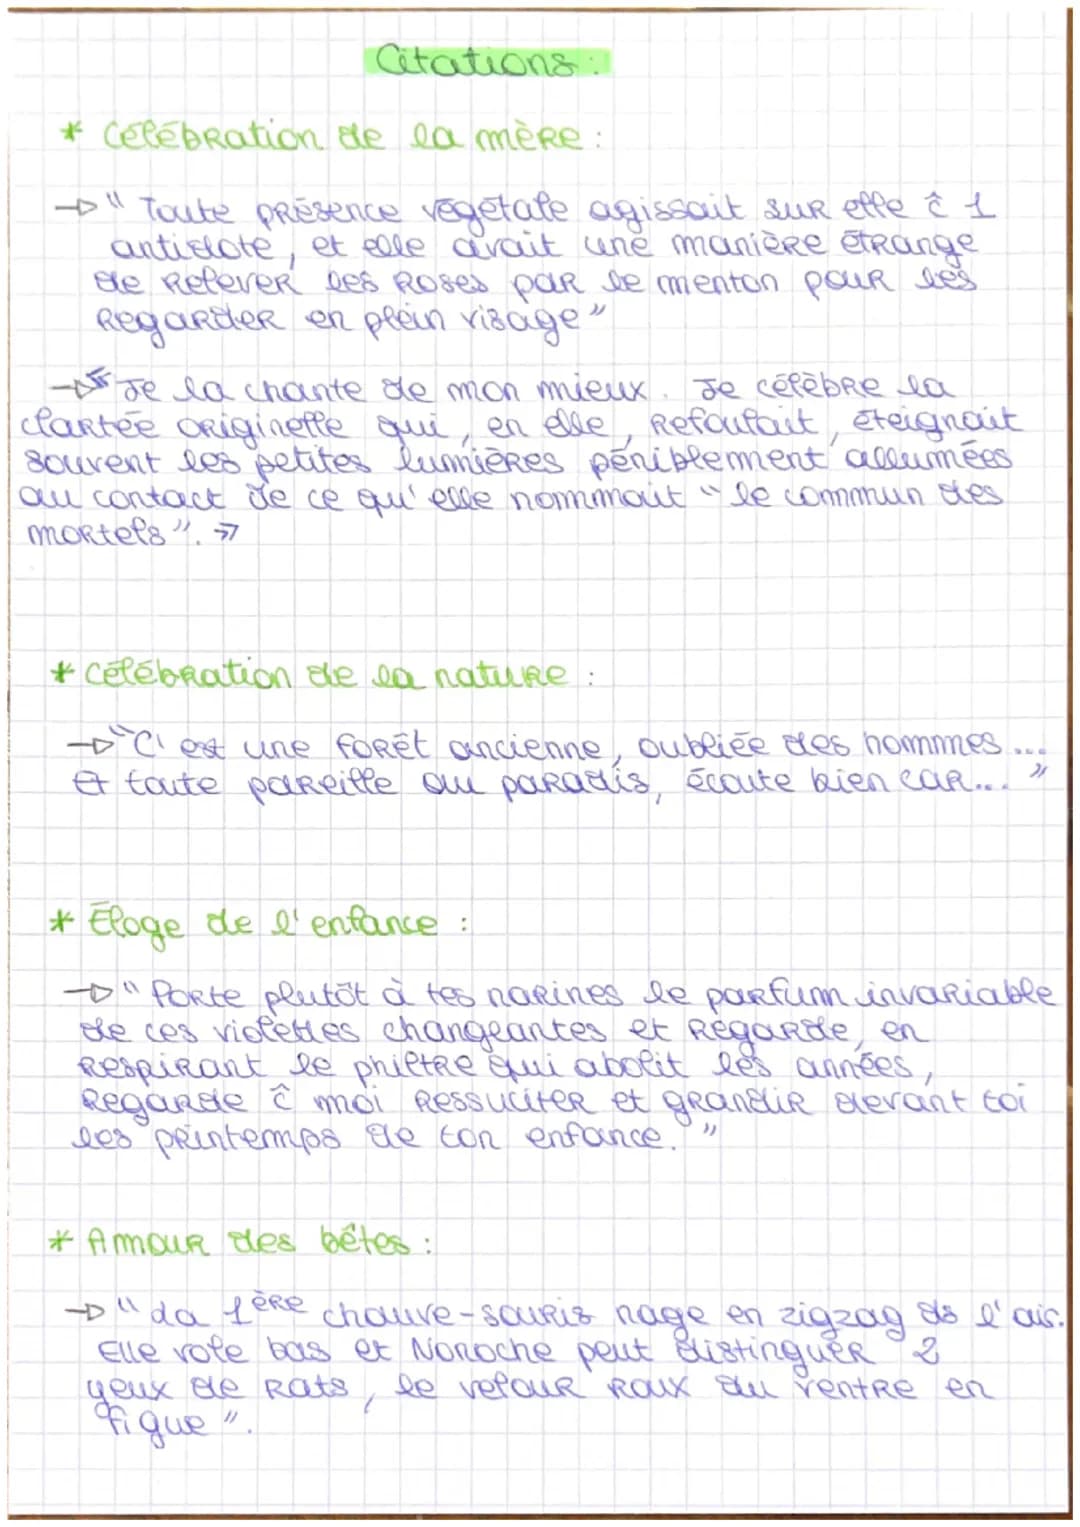 Citations :
* Célébration de la mère :
→ " Toute présence végétale agissait sur elle c̄ 1
antidote, et elle avait une manière étrange
de relever les roses par le menton pour les
regarder en plein visage "
→ « Je la chante de mon mieux. Je célèbre la
clartée originelle qui, en elle, refoulait, éteignait
souvent les petites lumières péniblement allumées
au contact de ce qu'elle nommait " le commun des
mortels ". »
* Célébration de la nature :
→ " C'est une forêt ancienne, oubliée des hommes ...
Et toute pareille au paradis, écoute bien car... "
* Éloge de l'enfance :
→ " Porte plutôt à tes narines le parfum invariable
de ces violettes changeantes et regarde, en
respirant le philtre qui abolit les années,
regarde c̄ moi ressuciter et grandir devant toi
les printemps de ton enfance. "
* Amour des bêtes :
→ " La 1ère chauve-souris nage en zigzag ds l'air.
Elle vole bas et Nonoche peut distinguer 2
yeux de rats, le velour roux du ventre en
figue ".